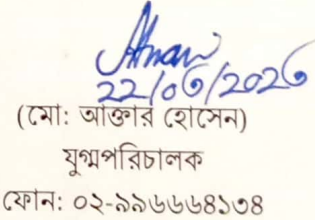 22/06/2026
(মো: আক্তার হোসেন)
যুগ্মপরিচালক
ফোন: ০২-৯৯৬৬৬৪১৩৪